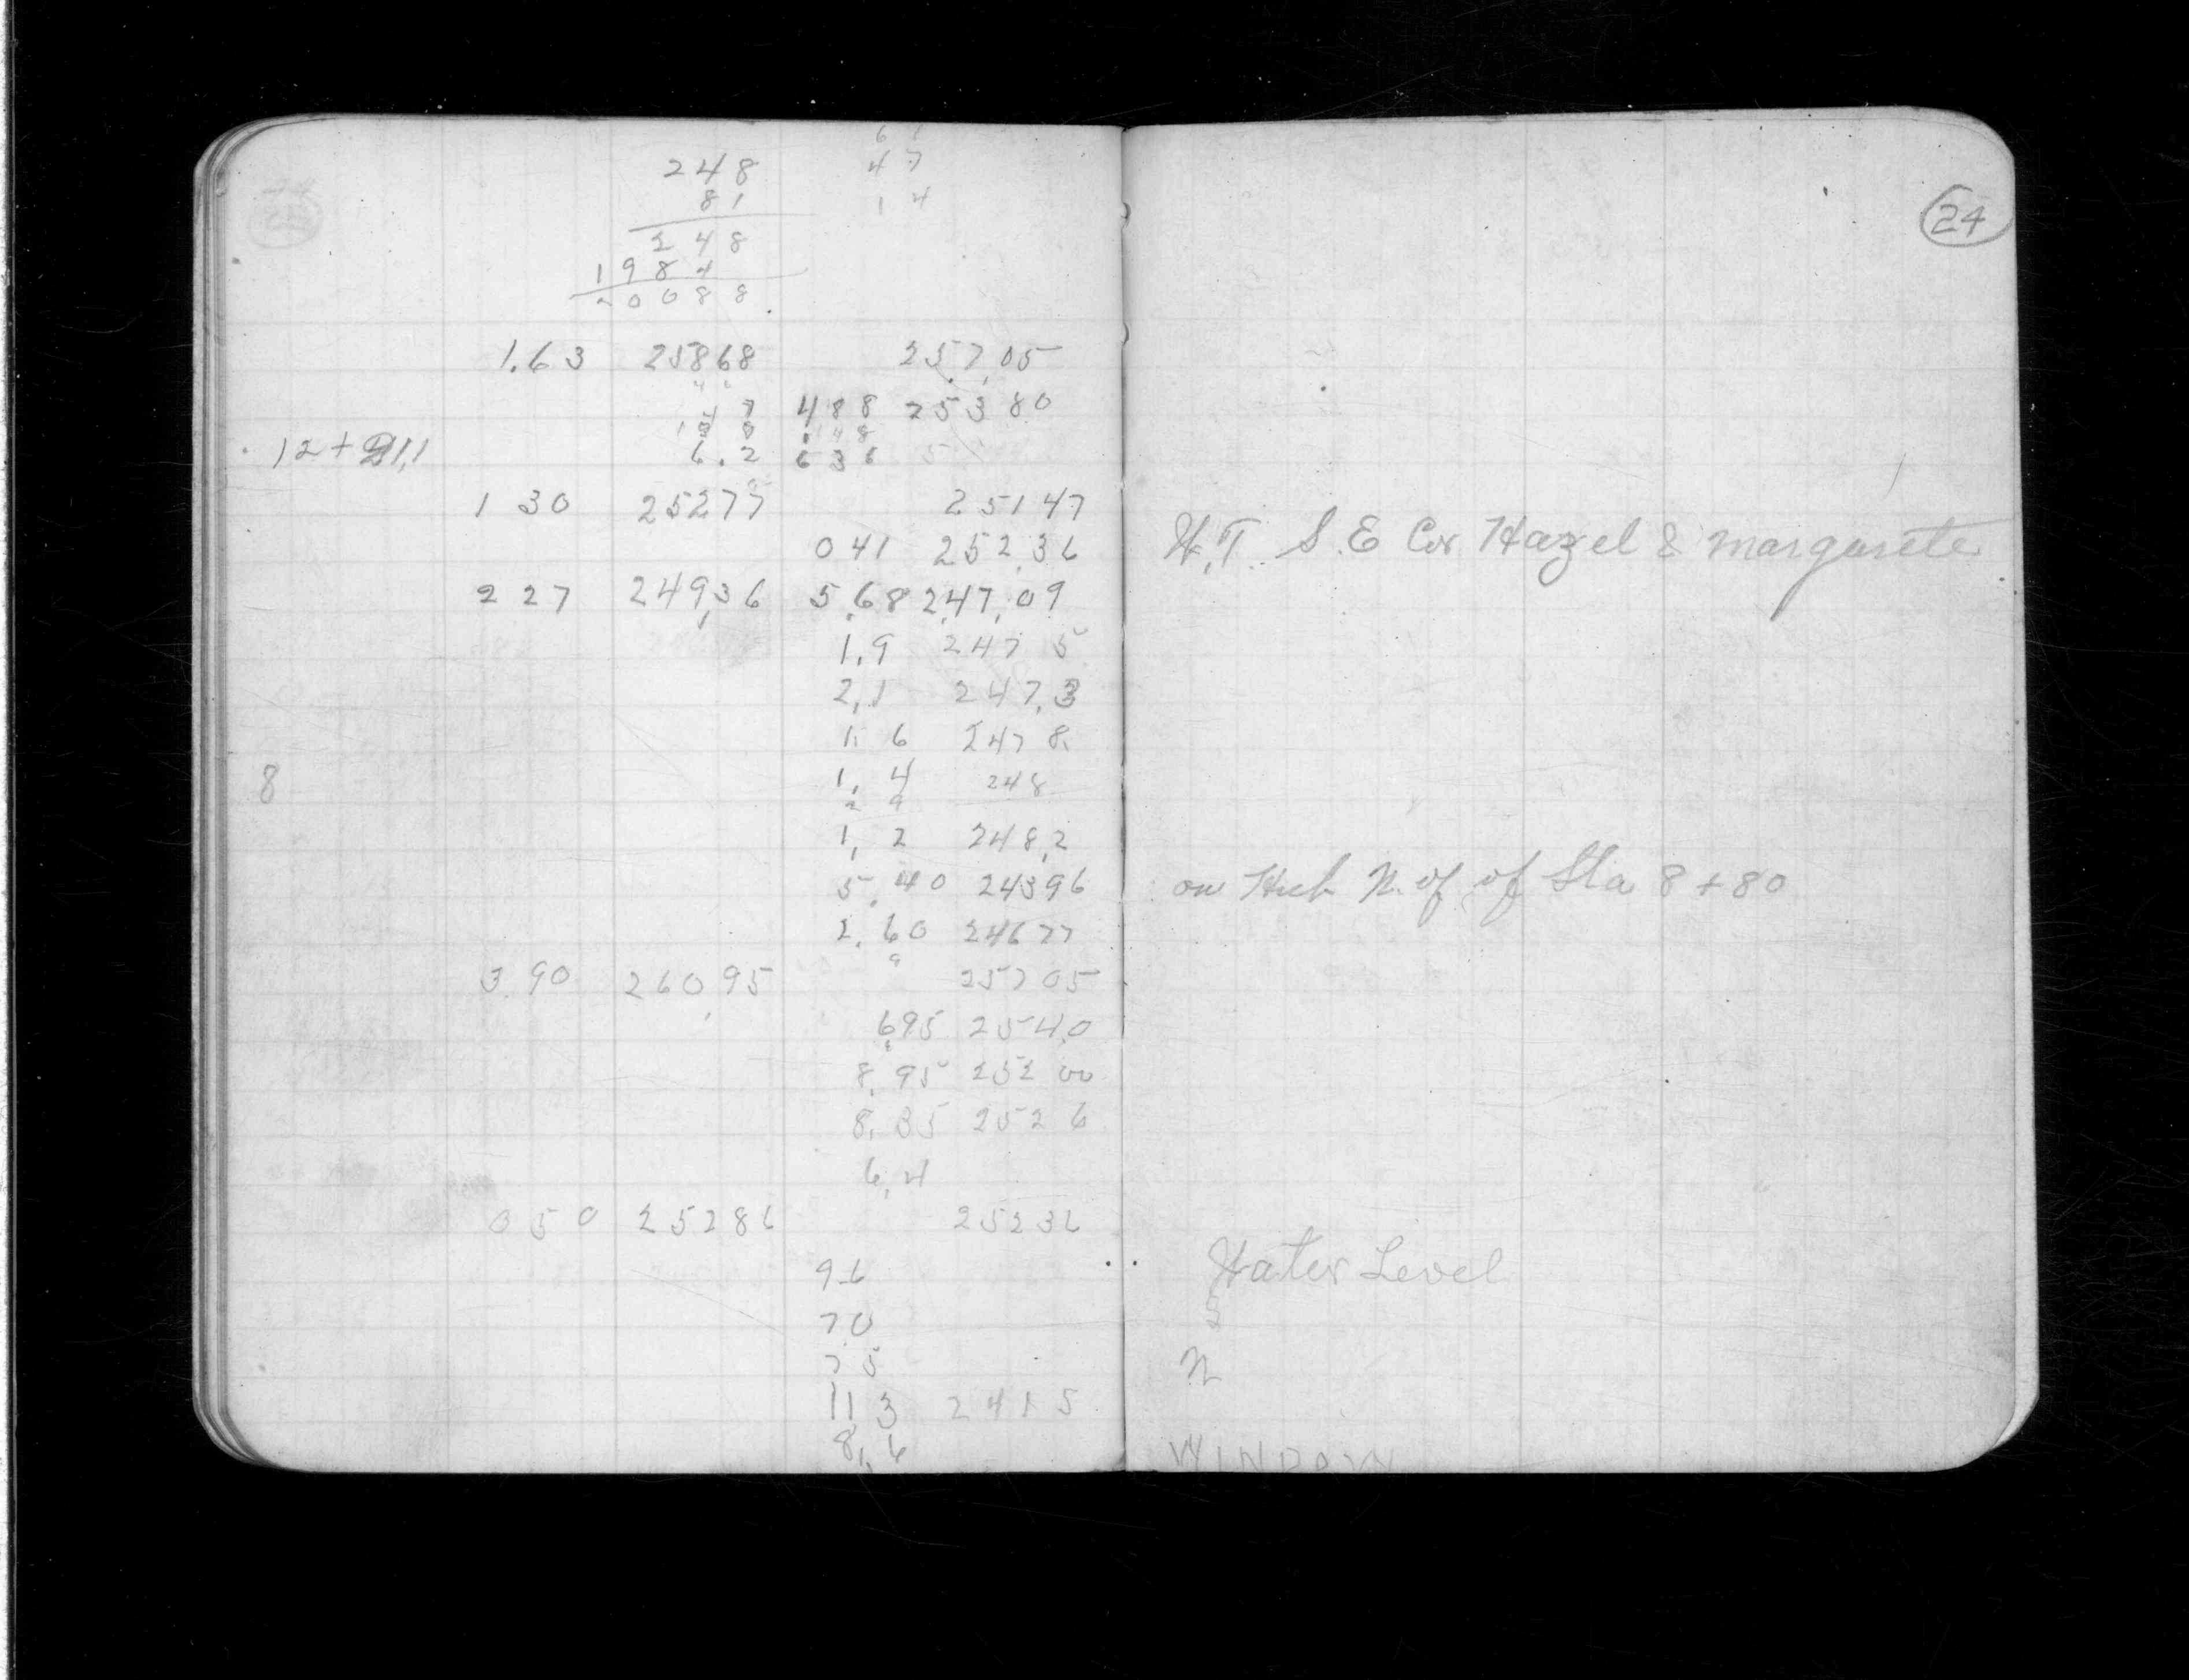 248 47
81 14
248
1984
20088
1.63 25868 257,05
4 7 488 25380
148
12+ 6.2 636
1 30 25277 25147
041 252,36
2 27 249,36 5.68 247,09
1.9 247 5
2,1 247,3
1. 6 247 8.
8 1, 4 248
2 9
1, 2 248,2
5.40 24396
2.60 24677
3 90 260,95 25705
695 254,0
8,95 252 00
8,35 252 6
6,4
0 5 0 25286 25236
9-6
7.0
7 5
11 3 241 5
8,6
24
S.E Cor. Hazel & Margarete
on Hub N. of of Sta 8 + 80
Water Level
S
N
WINDOW